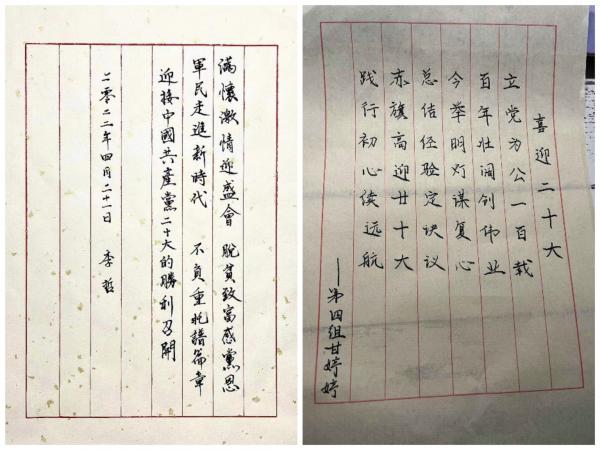 滿懷激情迎盛會 脫貧致富感黨恩
軍民走進新時代 不負重托譜篇章
迎接中國共產黨二十大的勝利召開
二零二二年四月二十一日 李哲
喜迎二十大
立党为公一百载
百年壮阔创伟业
今举明灯谋复心
总结经验定决议
赤旗高迎廿十大
践行初心续远航
——第四组甘婷婷